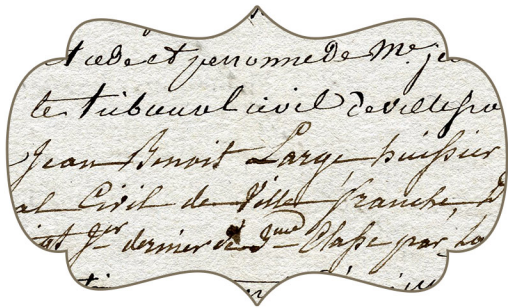 et personne de Me. je
le tribunal civil de villefra
Jean Benoit Large huissier
al Civil de Ville franche, D
Jer dernier 3eme Classe par La